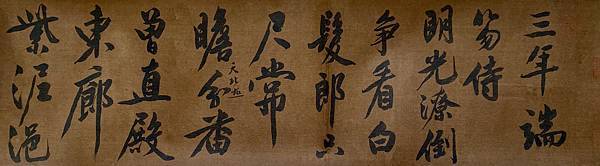 三年端
笏侍
明光潦倒
争看白
髮郎只
尺常
瞻天北極分番
曾直殿
東廊
紫泥浥